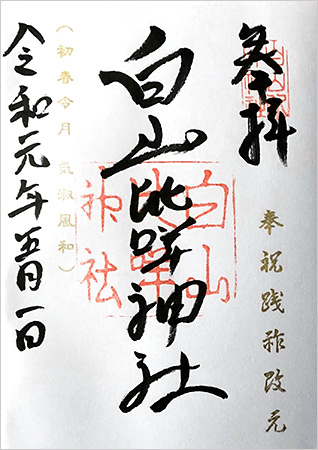 参拝
奉祝践祚改元
白山比咩神社
白山比咩神社
(初春令月 気淑風和)
令和元年五月一日